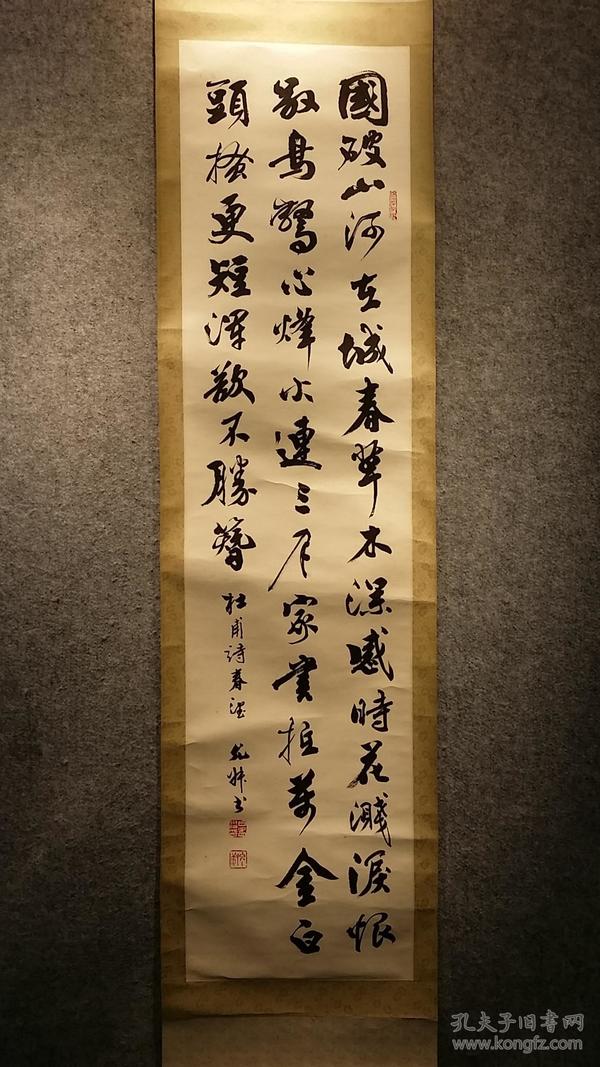 國破山河在城春草木深感時花濺淚恨
別鳥驚心烽火連三月家書抵萬金白
頭搔更短渾欲不勝簪
杜甫詩春望 书
孔夫子旧书网
www.kongfz.com